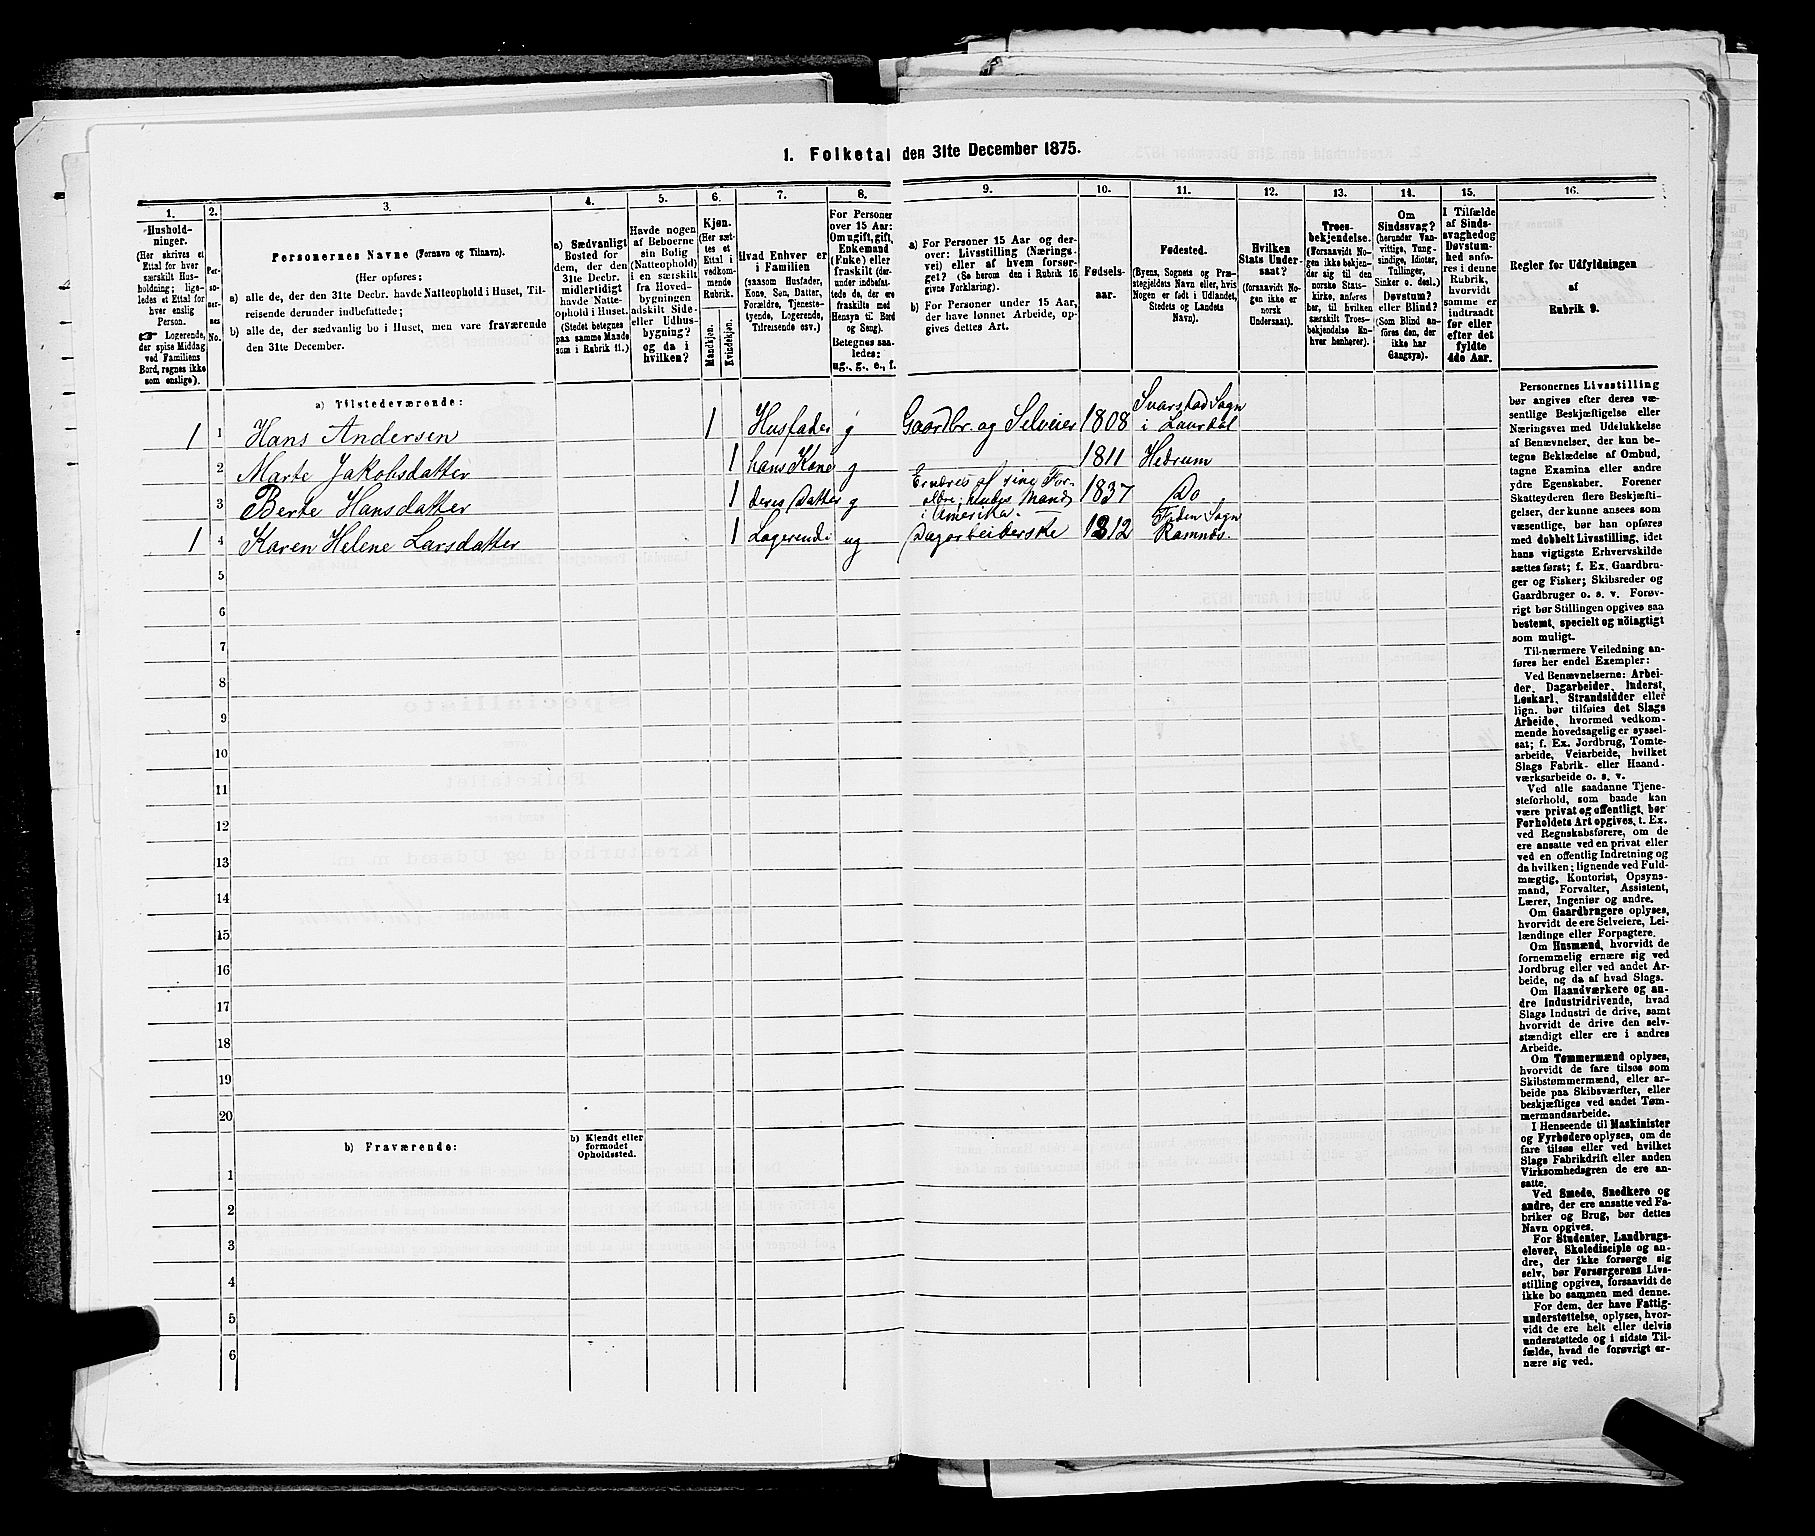 1. Folketal den 31te December 1875.
1.
2.
3.
4.
5.
6.
7.
8.
9.
10.
11.
12.
13.
14.
15.
16.
Husholdninger.
(Her skrives et
Ettal for hver
særskilt Husholdning; ligeledes
et Ettal for
hver enslig
Person.
☞ Logerende,
der spise Middag
ved Familiens
Bord, regnes ikke
som enslige).
Personernes No.
Personernes Navne (Fornavn og Tilnavn).
(Her opføres:
a) alle de, der den 31te Decbr. havde Natteophold i Huset, Tilreisende
derunder indbefattede;
b) alle de, der sædvanlig bo i Huset, men vare fraværende
den 31te December.
a) Sædvanligt
Bosted for
dem, der den
31te Decbr.
midlertidigt
havde Natteophold
i Huset.
(Stedet betegnes
paa samme Maade
som i Rubrik 11.)
Havde nogen
af Beboerne
sin Bolig
(Natteophold)
i en særskilt
fra Hovedbygningen
adskilt Side-
eller Udhusbygning?
og da i
hvilken?
Kjøn.
(Her sættes
et
Ettal i
vedkommende
Rubrik.
Mandkjøn.
Kvindekjøn.
Hvad Enhver er
i Familien
(saasom Husfader,
Kone, Søn, Datter,
Forældre, Tjenestetyende,
Logerende,
Tilreisende osv.)
For Personer
over 15 Aar:
Om ugift, gift,
Enkemand
(Enke) eller
fraskilt (derunder
indbefattede
de, der ere
fraskilte med
Hensyn til Bord
og Seng).
Betegnes saaledes:
ug., g., e., f.
a) For Personer 15 Aar og derover:
Livsstilling (Næringsvei)
eller af hvem forsørget?
(Se herom den i Rubrik 16
givne Forklaring).
b) For Personer under 15 Aar,
der have lønnet Arbeide, opgives
dettes Art.
Fødselsaar.
Fødested.
(Byens, Sognets og Præstegjeldets
Navn eller, hvis
Nogen er født i Udlandet,
Stedets og Landets
Navn).
Hvilken
Stats Undersaat?
(foraavidt Nogen
ikke er
norsk
Undersaat).
Troesbekjendelse.
(Forsaavidt Nogen
ikke bekjender
sig til den
norske Statskirke,
anføres
her, til hvilken
særskilt Troesbekjendelse
Enhver
henhører).
Om
Sindssvag?
(herunder Vanvittige,
Tungsindige,
Idioter,
Tullinger,
Sinker o. desl.)
Døvstum?
eller Blind?
(Som Blind anføres
den, der
ikke har
Gangsyn).
I Tilfælde
af Sindssvaghed
og
Døvstumhed
anføres
i denne
Rubrik,
hvorvidt
samme er
indtraadt
før eller
efter det
fyldte
4de Aar.
Regler for Udfyldningen
af
Rubrik 9.
a) Tilstedeværende:
1 1 Hans Andersen 1 Husfader g Gaardbr. og Selveier 1808 Svarstad Sogn
i Laurdal
2 Marte Jakobsdatter 1 hans Kone g 1811 Hedrum
3 Berte Hansdatter 1 deres Datter g Ernæres af sine Forældre;
hendes Mand
i Amerika. 1837 Do
1 4 Karen Helene Larsdatter 1 Logerende ug Dagarbeiderske 1812 Sogn
Ramnæs.
5
6
7
8
9
10
11
12
13
14
15
16
17
18
19
20
b) Fraværende:
b) Kjendt eller
formodet
Opholdssted.
1
2
3
4
5
6
Personernes Livsstilling
bør angives efter deres væsentlige
Beskjæftigelse eller
Næringsvei med Udelukkelse
af Benævnelser, der kun betegne
Beklædelse af Ombud,
tagne Examina eller andre
ydre Egenskaber. Forener
Skatteyderen flere Beskjæftigelser,
der kunne ansees som
væsentlige, bør han opføres
med dobbelt Livsstilling, idet
hans vigtigste Erhvervskilde
sættes først; f. Ex. Gaardbruger
og Fisker; Skibsreder og
Gaardbruger o. s. v. Forøvrigt
bør Stillingen opgives saa
bestemt, specielt og nöiagtigt
som muligt.
Til nærmere Veiledning anføres
her endel Exempler:
Ved Benævnelserne: Arbeider,
Dagarbeider, Inderst,
Løskarl, Strandsidder eller
lign. bør tilføies det Slags
Arbeide, hvormed vedkommende
hovedsagelig er sysselsat;
f. Ex. Jordbrug, Tomtearbeide,
Veiarbeide, hvilket
Slags Fabrik- eller Haandværksarbeide
o. s. v.
Ved alle saadanne Tjenesteforhold,
som baade kan
være privat og offentligt, bør
Forholdets Art opgives, t. Ex.
ved Regnskabsførere, om de
ere ansatte ved en privat eller
ved en offentlig Indretning og
da hvilken; lignende ved Fuldmægtig,
Kontorist, Opsynsmand,
Forvalter, Assistent,
Lærer, Ingeniør og andre.
Om Gaardbrugere oplyses,
hvorvidt de ere Selveiere, Leilændinge
eller Forpagtere.
Om Husmænd, hvorvidt de
fornemmelig ernære sig ved
Jordbrug eller ved andet Arbeide,
og da af hvad Slags.
Om Haandværkere og andre
Industridrivende, hvad
Slags Industri de drive, samt
hvorvidt de drive den selvstændigt
eller ere i andres
Arbeide.
Om Tømmermænd oplyses,
hvorvidt de fare tilsøs som
Skibstømmermænd, eller arbeide
paa Skibsværfter, eller
beskjæftiges ved andet Tømmermandsarbeide.
I Henseende til Maskinister
og Fyrbødere oplyses, om de
fare tilsøs eller ved hvilket
Slags Fabrikdrift eller anden
Virksomhedsgren de ere ansatte.
Ved Smede, Snedkere og
andre, der ere ansatte ved Fabriker
og Brug, bør dettes
Navn opgives.
For Studenter, Landbrugselever,
Skoledisciple og andre,
der ikke forsørge sig
selv, bør Forsørgerens Livsstilling
opgives, forsaavidt de
ikke bo sammen med denne.
For dem, der have Fattigunderstøttelse,
oplyses, hvorvidt
de ere helt eller delvis
understøttede og i sidste Tilfælde,
hvad de forøvrigt ernære
sig ved.